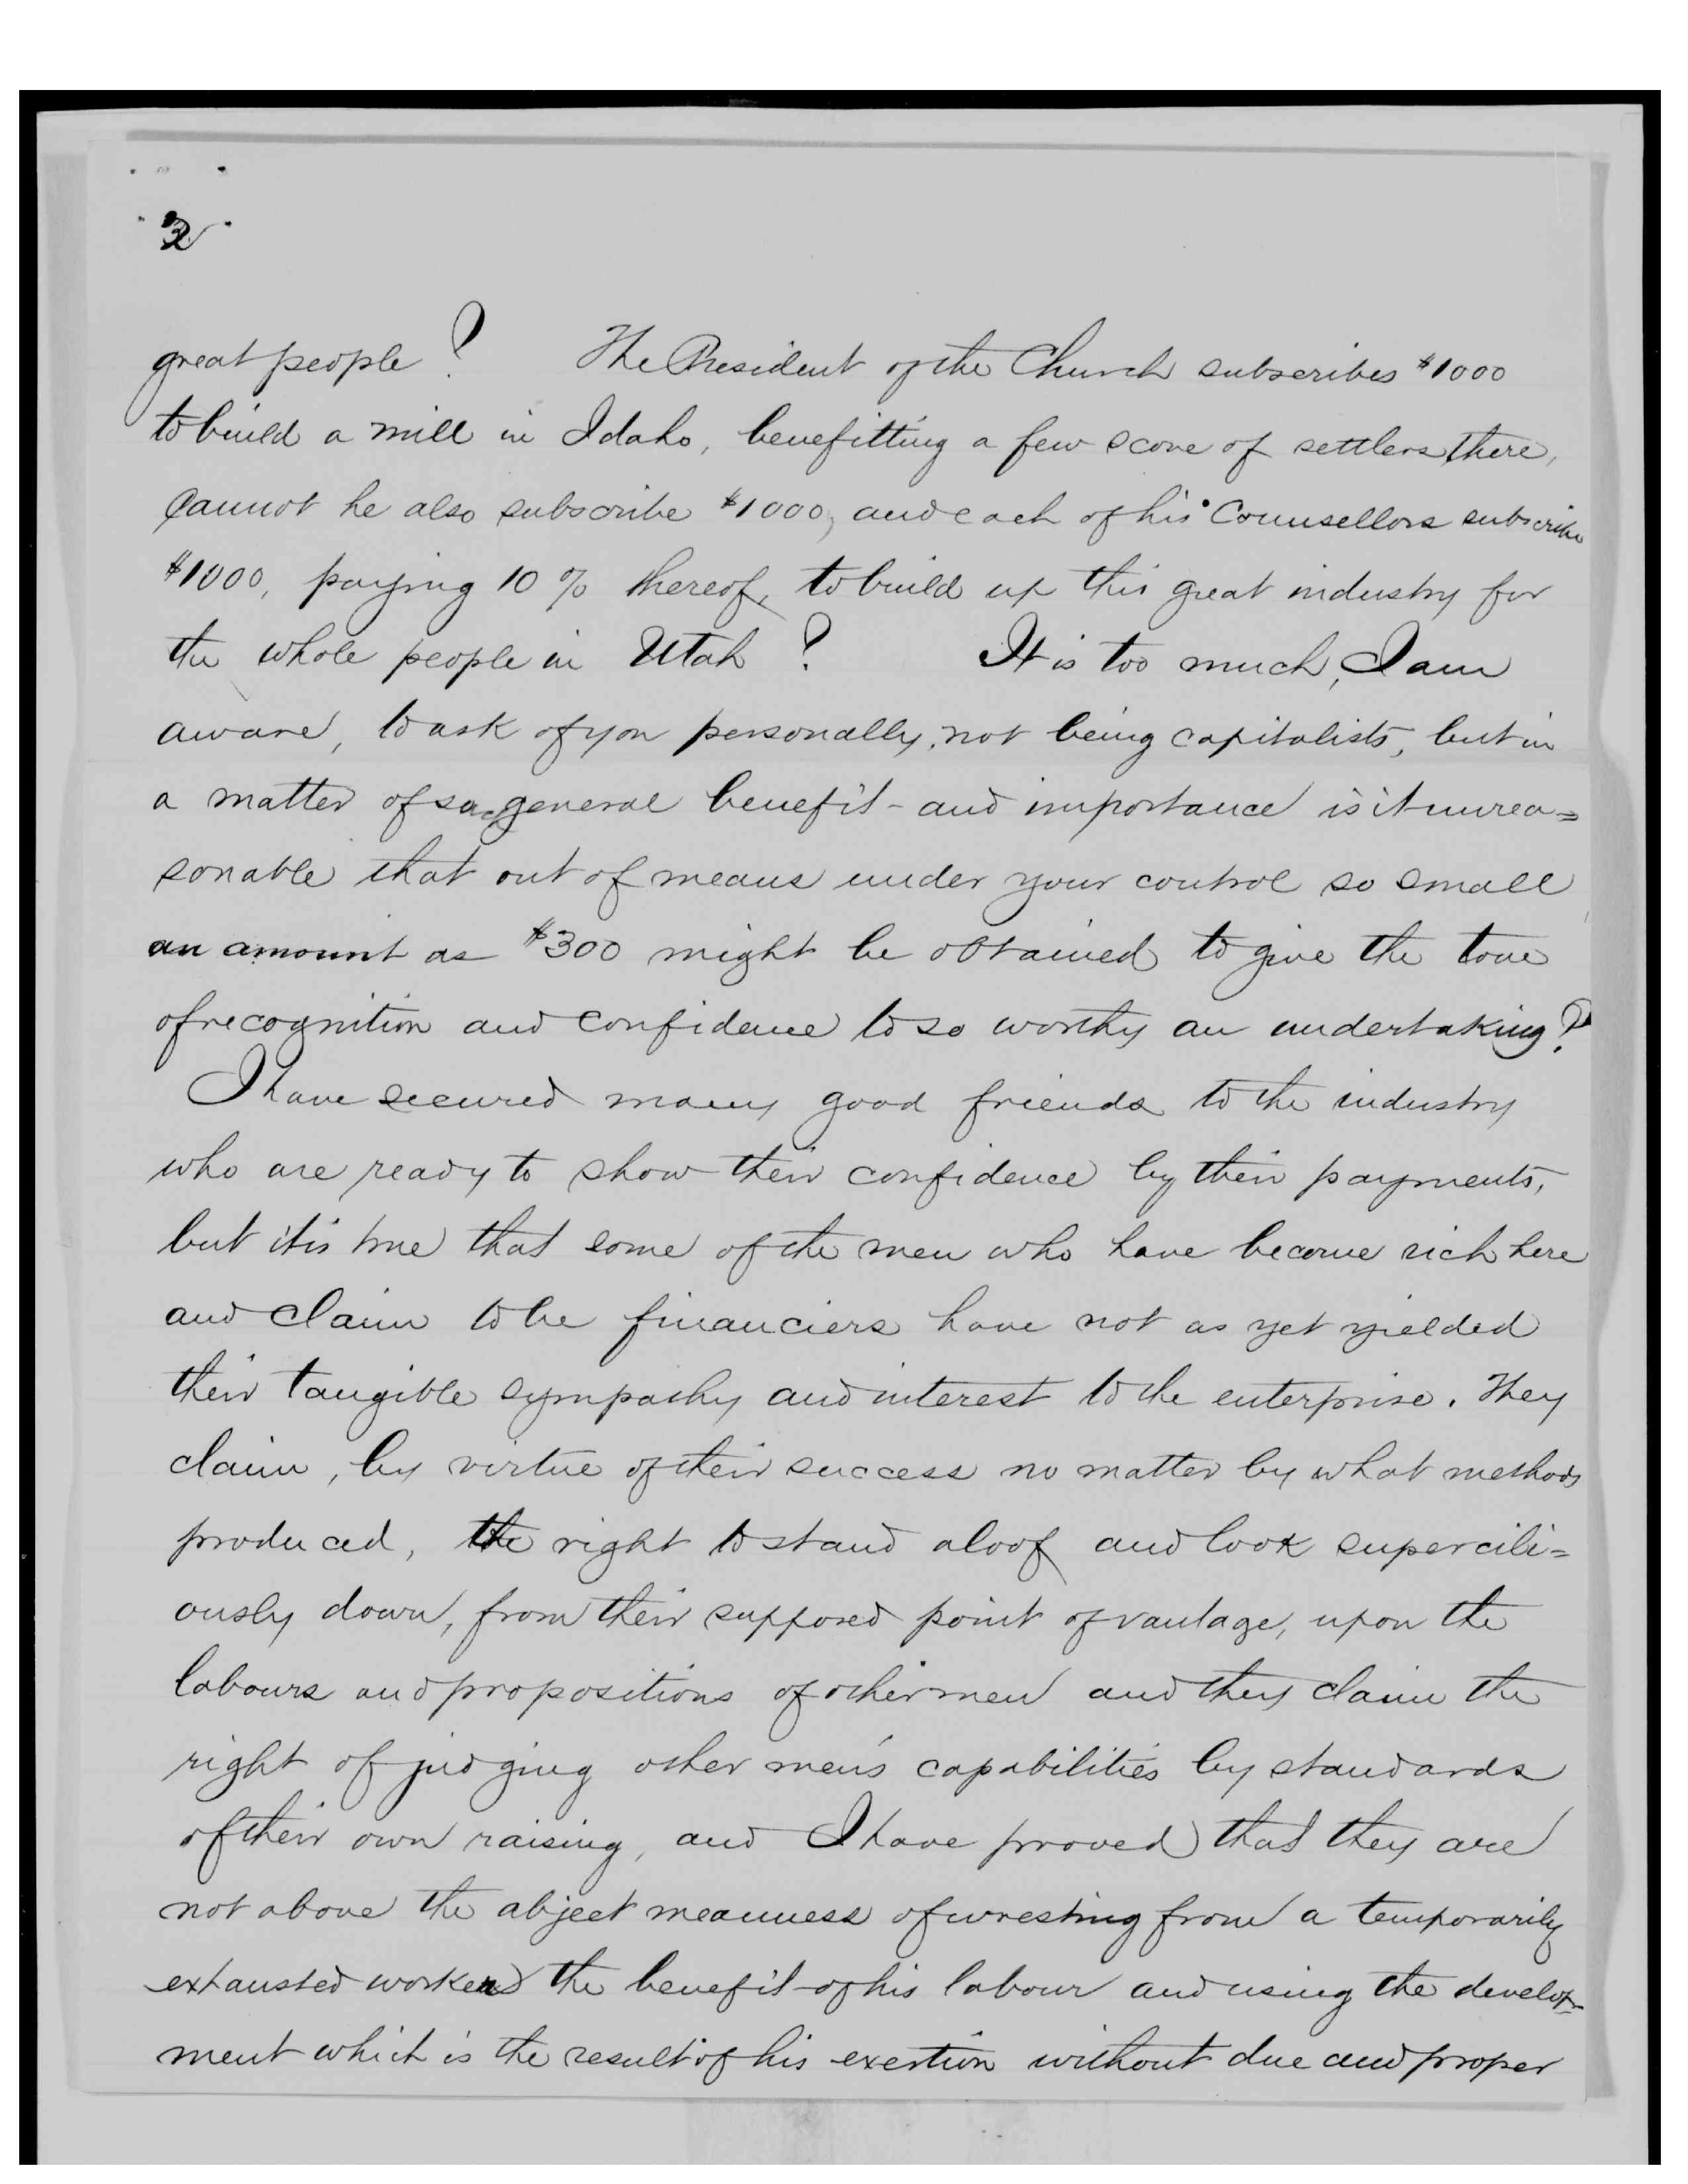 great people? The President of the Church subscribes $1000
to build a mill in Idaho, benefitting a few score of settlers there,
Cannot he also subscribe $1000, and each of his Counsellors subscribe
$1000, paying 10 % thereof, to build up this great industry for
the whole people in Utah? It is too much, I am
aware, to ask of you personally, not being capitalists, but in
a matter of such general benefit - and importance is it unrea=
sonable that out of means under your control so small
an amount as $300 might be obtained to give the tone
of recognition and confidence to so worthy an undertaking?
I have secured many good friends to the industry
who are ready to show their confidence by their payments,
but it is true that some of the men who have become rich here
and claim to be financiers have not as yet yielded
their tangible sympathy and interest to the enterprise. They
claim, by virtue of their success no matter by what methods
produced, the right to stand aloof and look supercili=
ously down, from their supposed point of vantage, upon the
labours and propositions of other men and they claim the
right of judging other men's capabilities by standards
of their own raising, and I have proved that they are
not above the abject meanness of wresting from a temporarily
exhausted worker the benefit of his labour and using the develop-
ment which is the result of his exertion without due and proper